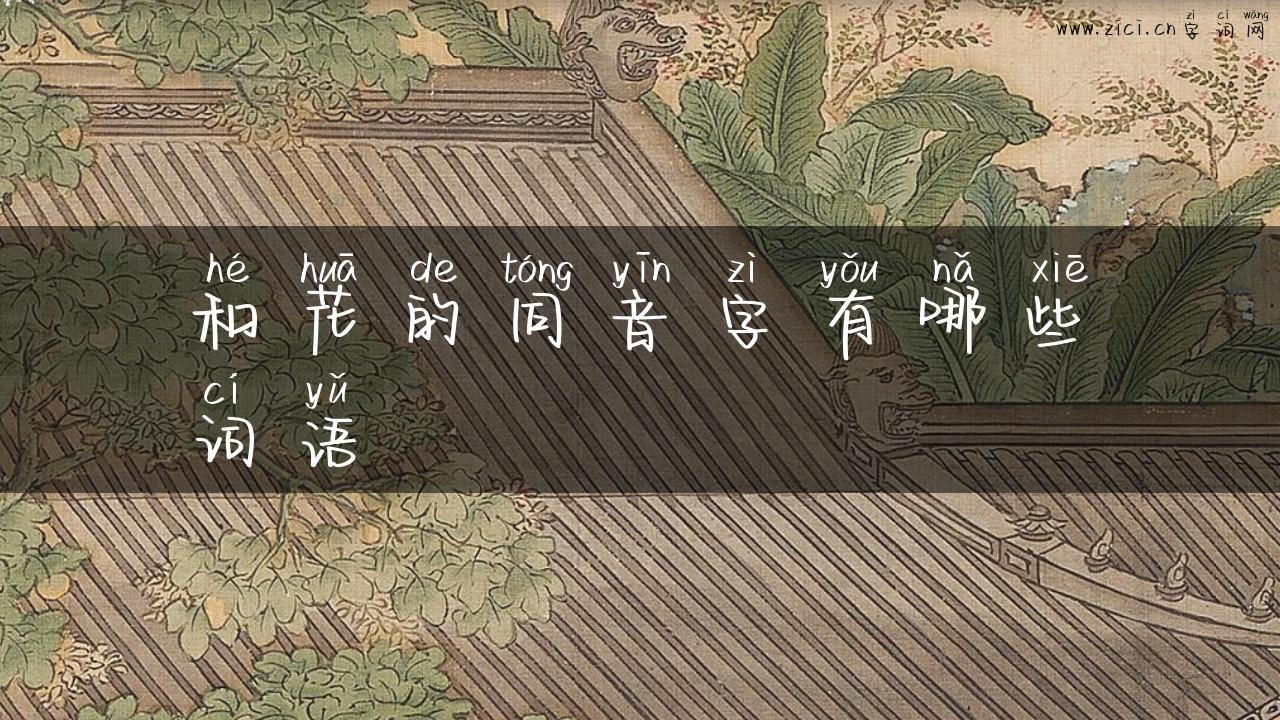 www.zici.cn zì cí wǎng
字词网
hé huā de tóng yīn zì yǒu nǎ xiē
和花的同音字有哪些
cí yǔ
词语